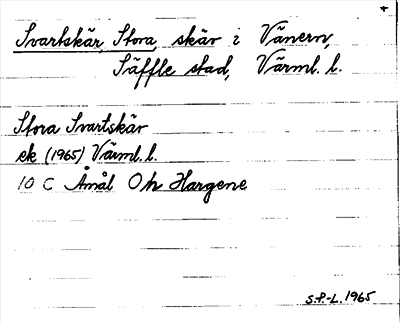 Svartskär, Stora, skär i Vänern,
Säffle stad, Värml. l.
Stora Svartskär
ek (1965) Värml. l.
10 C Åmål Oh Hargene
S.P.-L. 1965